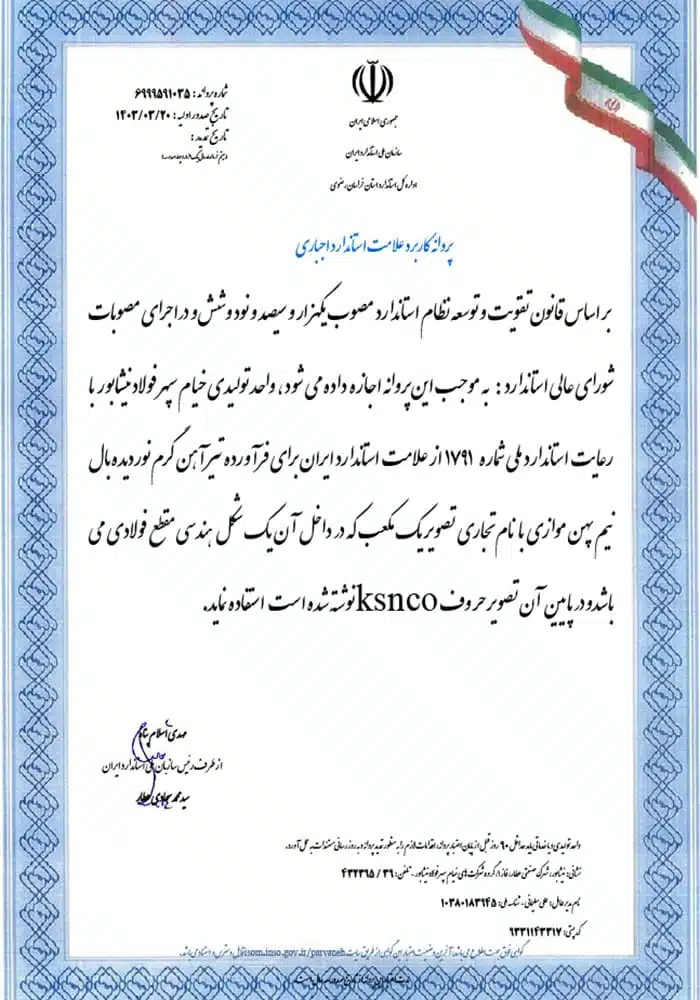 جمهوری اسلامی ایران
سازمان ملی استاندارد ایران
اداره کل استاندارد استان خراسان رضوی
شماره پروانه: ۶۹۹۹۵۹۱۰۳۵
تاریخ صدور اولیه: ۱۴۰۳/۰۳/۲۰
تاریخ تمدید:
پروانه کاربرد علامت استاندارد اجباری
بر اساس قانون تقویت و توسعه نظام استاندارد مصوب یکهزار و سیصد و نود و شش و در اجرای مصوبات
شورای عالی استاندارد: به موجب این پروانه اجازه داده می شود، واحد تولیدی خیام سپهر فولاد نیشابور با
رعایت استاندارد ملی شماره ۱۷۹۱ از علامت استاندارد ایران برای فرآورده تیرآهن گرم نوردیده بال
نیم پهن موازی با نام تجاری تصویر یک مکعب که در داخل آن یک شکل هندسی مقطع فولادی می
باشد و در پایین آن تصویر حروف ksnco نوشته شده است استفاده نماید.
مهدی اسلام پناه
از طرف رئیس سازمان ملی استاندارد ایران
سید محمد عطار
واحد تولیدی / خدماتی باید حداقل ۹۰ روز قبل از پایان اعتبار پروانه، اقدامات لازم را به منظور تمدید پروانه و به روز رسانی مستندات به عمل آورد.
نشانی: نیشابور، شهرک صنعتی عطار، فاز ۱، گروه شرکت های خیام سپهر فولاد نیشابور - تلفن: ۳۹ / ۴۳۲۳۶۵
نام مدیر عامل: علی سلیمانی - شناسه ملی: ۱۰۳۸۰۱۸۳۹۴۵
کد پستی: ۹۳۳۱۱۴۳۳۱۷
گواهی فوق جهت اطلاع می باشد، آخرین وضعیت اعتبار این گواهی از طریق سایت isom.inso.gov.ir/parvaneh قابل دسترس و استناد می باشد.